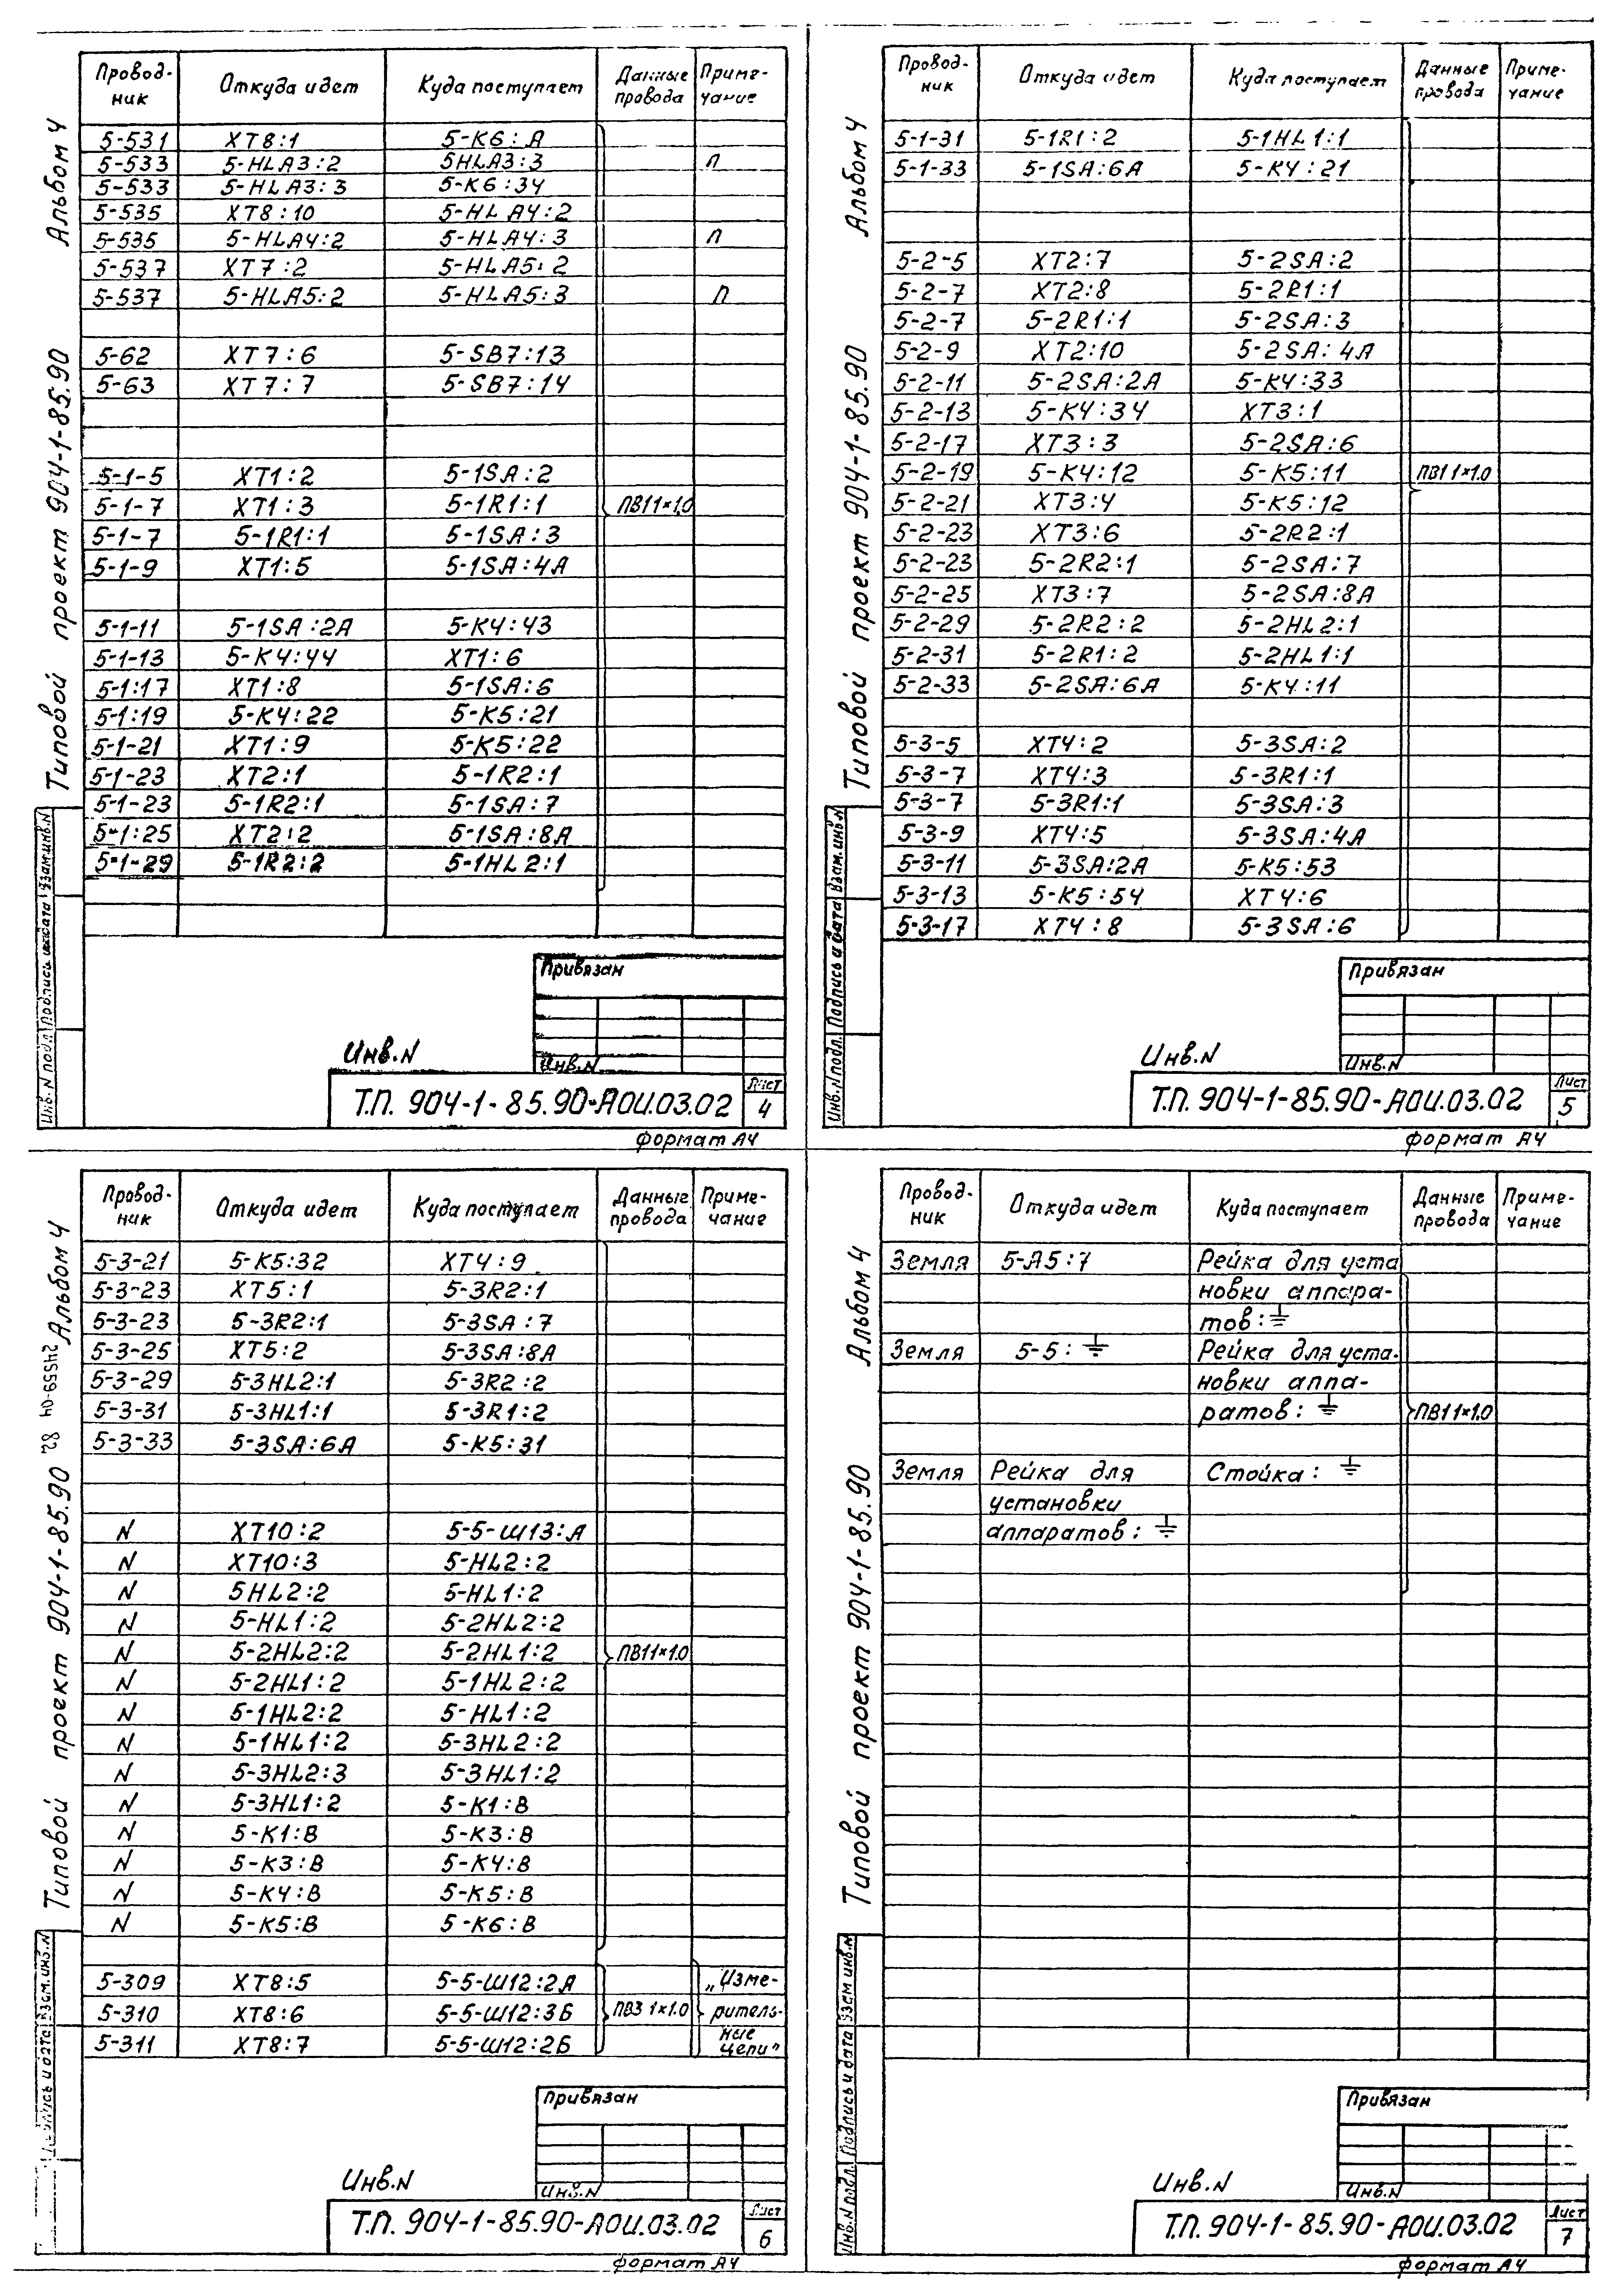 Альбом 4
Типовой проект 904-1-85.90
Провод-
ник
Откуда идет
Куда поступает
Данные
провода
Приме-
чание
5-531 XT8:1 5-K6:A
5-533 5-HLA3:2 5HLA3:3 П
5-533 5-HLA3:3 5-K6:34
5-535 XT8:10 5-HLA4:2
5-535 5-HLA4:2 5-HLA4:3 П
5-537 XT7:2 5-HLA5:2
5-537 5-HLA5:2 5-HLA5:3 П
5-62 XT7:6 5-SB7:13
5-63 XT7:7 5-SB7:14
5-1-5 XT1:2 5-1SA:2
5-1-7 XT1:3 5-1R1:1 ПВ1 1×1.0
5-1-7 5-1R1:1 5-1SA:3
5-1-9 XT1:5 5-1SA:4A
5-1-11 5-1SA:2A 5-K4:43
5-1-13 5-K4:44 XT1:6
5-1:17 XT1:8 5-1SA:6
5-1:19 5-K4:22 5-K5:21
5-1-21 XT1:9 5-K5:22
5-1-23 XT2:1 5-1R2:1
5-1-23 5-1R2:1 5-1SA:7
5-1:25 XT2:2 5-1SA:8A
5-1-29 5-1R2:2 5-1HL2:1
Привязан
Инв.N
Инв.N
Инв.N подл. Подпись и дата Взам.инв.N
Т.П. 904-1-85.90-АОИ.03.02
Лист
4
формат А4
Альбом 4
Типовой проект 904-1-85.90
Провод-
ник
Откуда идет
Куда поступает
Данные
провода
Приме-
чание
5-1-31 5-1R1:2 5-1HL1:1
5-1-33 5-1SA:6A 5-K4:21
5-2-5 XT2:7 5-2SA:2
5-2-7 XT2:8 5-2R1:1
5-2-7 5-2R1:1 5-2SA:3
5-2-9 XT2:10 5-2SA:4A
5-2-11 5-2SA:2A 5-K4:33
5-2-13 5-K4:34 XT3:1
5-2-17 XT3:3 5-2SA:6
5-2-19 5-K4:12 5-K5:11 ПВ1 1×1.0
5-2-21 XT3:4 5-K5:12
5-2-23 XT3:6 5-2R2:1
5-2-23 5-2R2:1 5-2SA:7
5-2-25 XT3:7 5-2SA:8A
5-2-29 5-2R2:2 5-2HL2:1
5-2-31 5-2R1:2 5-2HL1:1
5-2-33 5-2SA:6A 5-K4:11
5-3-5 XT4:2 5-3SA:2
5-3-7 XT4:3 5-3R1:1
5-3-7 5-3R1:1 5-3SA:3
5-3-9 XT4:5 5-3SA:4A
5-3-11 5-3SA:2A 5-K5:53
5-3-13 5-K5:54 XT4:6
5-3-17 XT4:8 5-3SA:6
Привязан
Инв.N
Инв.N
Инв.N подл. Подпись и дата Взам.инв.N
Т.П. 904-1-85.90-АОИ.03.02
Лист
5
формат А4
Альбом 4
24559-04 82
Типовой проект 904-1-85.90
Провод-
ник
Откуда идет
Куда поступает
Данные
провода
Приме-
чание
5-3-21 5-K5:32 XT4:9
5-3-23 XT5:1 5-3R2:1
5-3-23 5-3R2:1 5-3SA:7
5-3-25 XT5:2 5-3SA:8A
5-3-29 5-3HL2:1 5-3R2:2
5-3-31 5-3HL1:1 5-3R1:2
5-3-33 5-3SA:6A 5-K5:31
N XT10:2 5-5-Ш13:А
N XT10:3 5-HL2:2
N 5HL2:2 5-HL1:2
N 5-HL1:2 5-2HL2:2
N 5-2HL2:2 5-2HL1:2 ПВ1 1×1.0
N 5-2HL1:2 5-1HL2:2
N 5-1HL2:2 5-HL1:2
N 5-1HL1:2 5-3HL2:2
N 5-3HL2:3 5-3HL1:2
N 5-3HL1:2 5-K1:B
N 5-K1:B 5-K3:B
N 5-K3:B 5-K4:B
N 5-K4:B 5-K5:B
N 5-K5:B 5-K6:B
5-309 XT8:5 5-5-Ш12:2А „Изме-
5-310 XT8:6 5-5-Ш12:3Б ПВ3 1×1.0 ритель-
5-311 XT8:7 5-5-Ш12:2Б ные
цепи"
Привязан
Инв.N
Инв.N
дата Взам.инв.N
Т.П. 904-1-85.90-АОИ.03.02
Лист
6
формат А4
Альбом 4
Типовой проект 904-1-85.90
Провод-
ник
Откуда идет
Куда поступает
Данные
провода
Приме-
чание
Земля 5-А5:7 Рейка для уста
новки аппара-
тов: ⏚
Земля 5-5: ⏚ Рейка для уста-
новки аппа-
ратов: ⏚ ПВ1 1×1.0
Земля Рейка для Стойка: ⏚
установки
аппаратов: ⏚
Привязан
Инв.N
Инв.N
Инв.N подл. Подпись и дата Взам инв.N
Т.П. 904-1-85.90-АОИ.03.02
Лист
7
формат А4